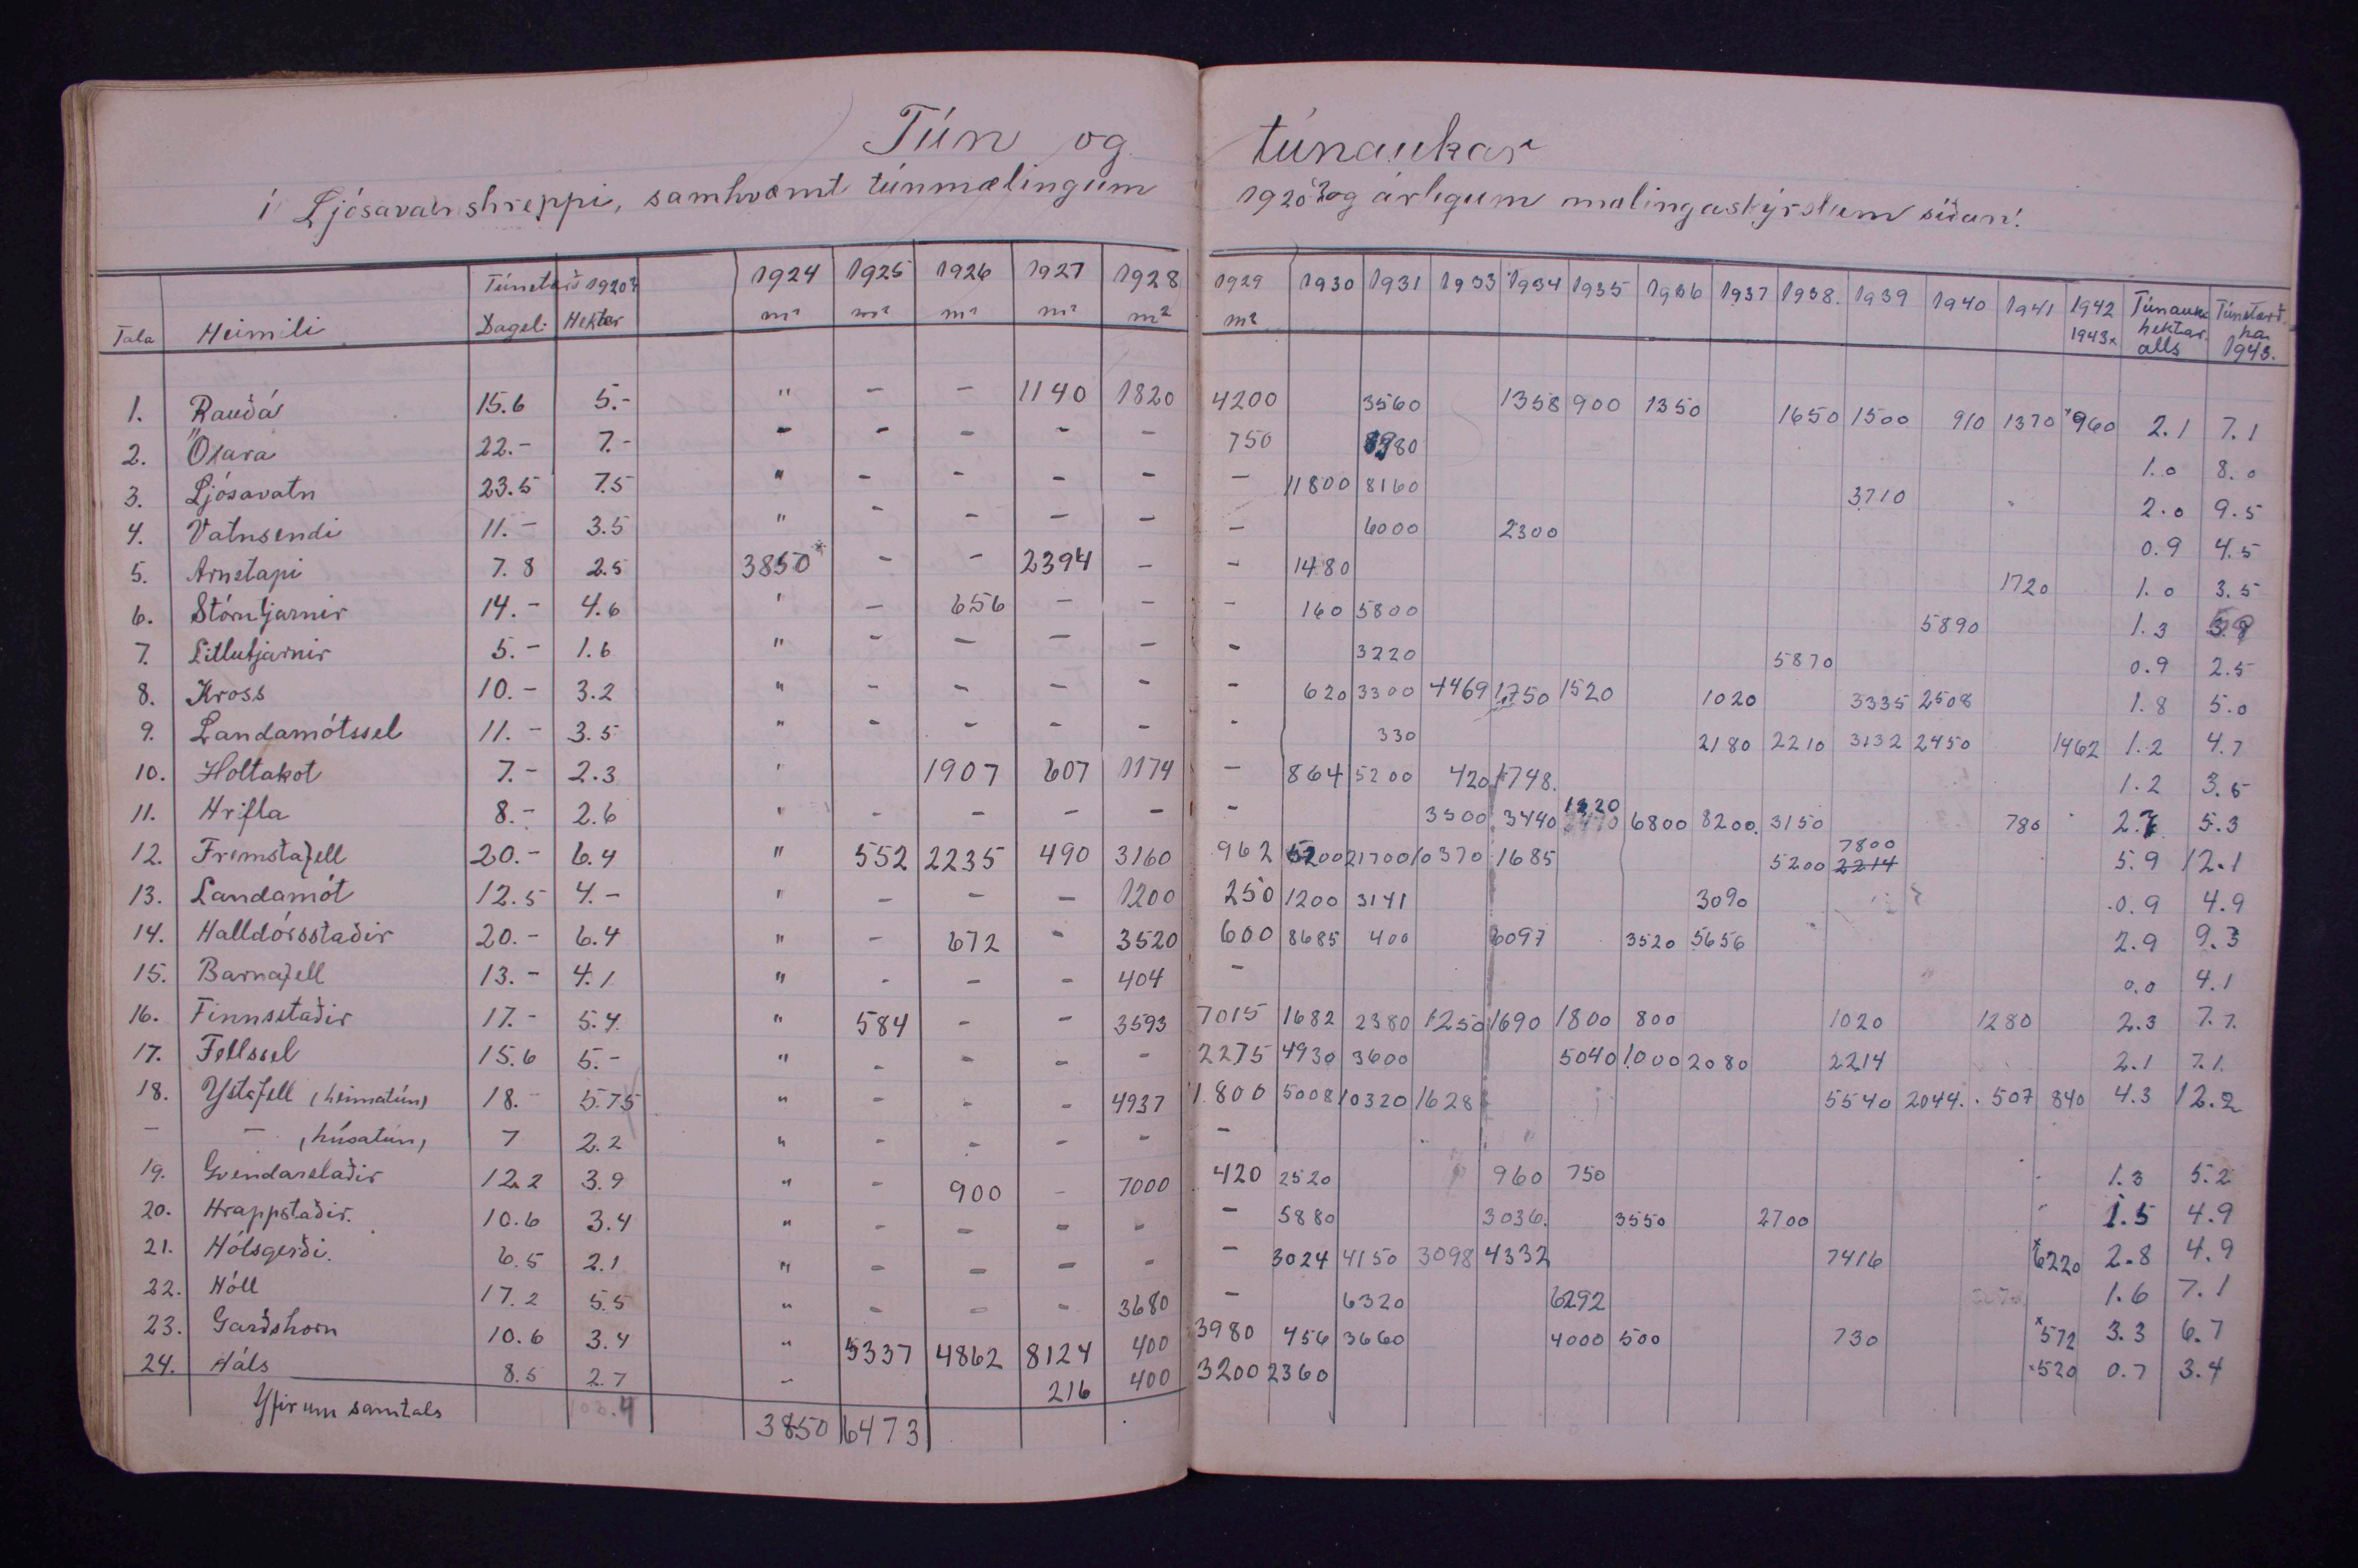 Tún og túnaukar
í Ljósavatnshreppi, samkvæmt túnmælingum 1920? og árlegum mælingaskýrslum síðan.
Tala Heimili Túnstærð 1920? Dagsl. Hektar 1924 m² 1925 m² 1926 m² 1927 m² 1928 m² 1929 m² 1930 1931 1933 1934 1935 1936 1937 1938. 1939 1940 1941 1942 1943x Túnauka hektar. alls Túnstærð ha. 1943.
1. Rauðá 15.6 5.- " - - 1140 1820 4200 3560 1358 900 1350 1650 1500 910 1370 x960 2.1 7.1
2. Öxará 22.- 7.- - - - - - 750 80 1.0 8.0
3. Ljósavatn 23.5 7.5 " - - - - - 11800 8160 3710 2.0 9.5
4. Vatnsendi 11.- 3.5 " - - - - - 6000 2300 0.9 4.5
5. Arnstapi 7.8 2.5 3850x - - 2394 - - 1480 1720 1.0 3.5
6. Stórutjarnir 14.- 4.6 ' - 656 - - - 160 5800 5890 1.3
7. Litlutjarnir 5.- 1.6 " - - - - - 3220 5870 0.9 2.5
8. Kross 10.- 3.2 " - - - - - 620 3300 4469 1750 1520 1020 3335 2508 1.8 5.0
9. Landamótssel 11.- 3.5 " - - - - - 330 2180 2210 3132 2450 1462 1.2 4.7
10. Holtakot 7.- 2.3 ' 1907 607 1174 - 864 5200 420 1748. 1.2 3.5
11. Hrifla 8.- 2.6 " - - - - - 3500 3440 1320 6800 8200. 3150 780 2.7 5.3
12. Fremstafell 20.- 6.4 " 552 2235 490 3160 962 5200 21700 10370 1685 5200 7800 2214 5.9 12.1
13. Landamót 12.5 4.- " - - - 1200 250 1200 3141 3090 0.9 4.9
14. Halldórsstaðir 20.- 6.4 " - 672 - 3520 600 8685 400 6097 3520 5656 2.9 9.3
15. Barnafell 13.- 4.1 " - - - 404 - 0.0 4.1
16. Finnsstaðir 17.- 5.4 " 584 - - 3593 7015 1682 2380 1250 1690 1800 800 1020 1280 2.3 7.7.
17. Fellssel 15.6 5.- " - - - - 2275 4930 3600 5040 1000 2080 2214 2.1 7.1.
18. Ystafell (heimatún) 18.- 5.75 " - - - 4937 1800 5008 10320 1628 5540 2044. 507 840 4.3 12.2
- - (húsatún) 7 2.2 " - - - - -
19. Gvendarstaðir 12.2 3.9 " - 900 - 7000 420 2520 960 750 1.3 5.2
20. Hrappstaðir. 10.6 3.4 " - - - - - 5880 3036. 3550 2700 1.5 4.9
21. Hólsgerði. 6.5 2.1 " - - - - - 3024 4150 3098 4332 7416 x6220 2.8 4.9
22. Hóll 17.2 5.5 " - - - 3680 - 6320 6292 1.6 7.1
23. Garðshorn 10.6 3.4 " 5337 4862 8124 400 3980 456 3660 4000 500 730 x572 3.3 6.7
24. Háls 8.5 2.7 - 216 400 3200 2360 x520 0.7 3.4
Yfirum samtals 3850 6473